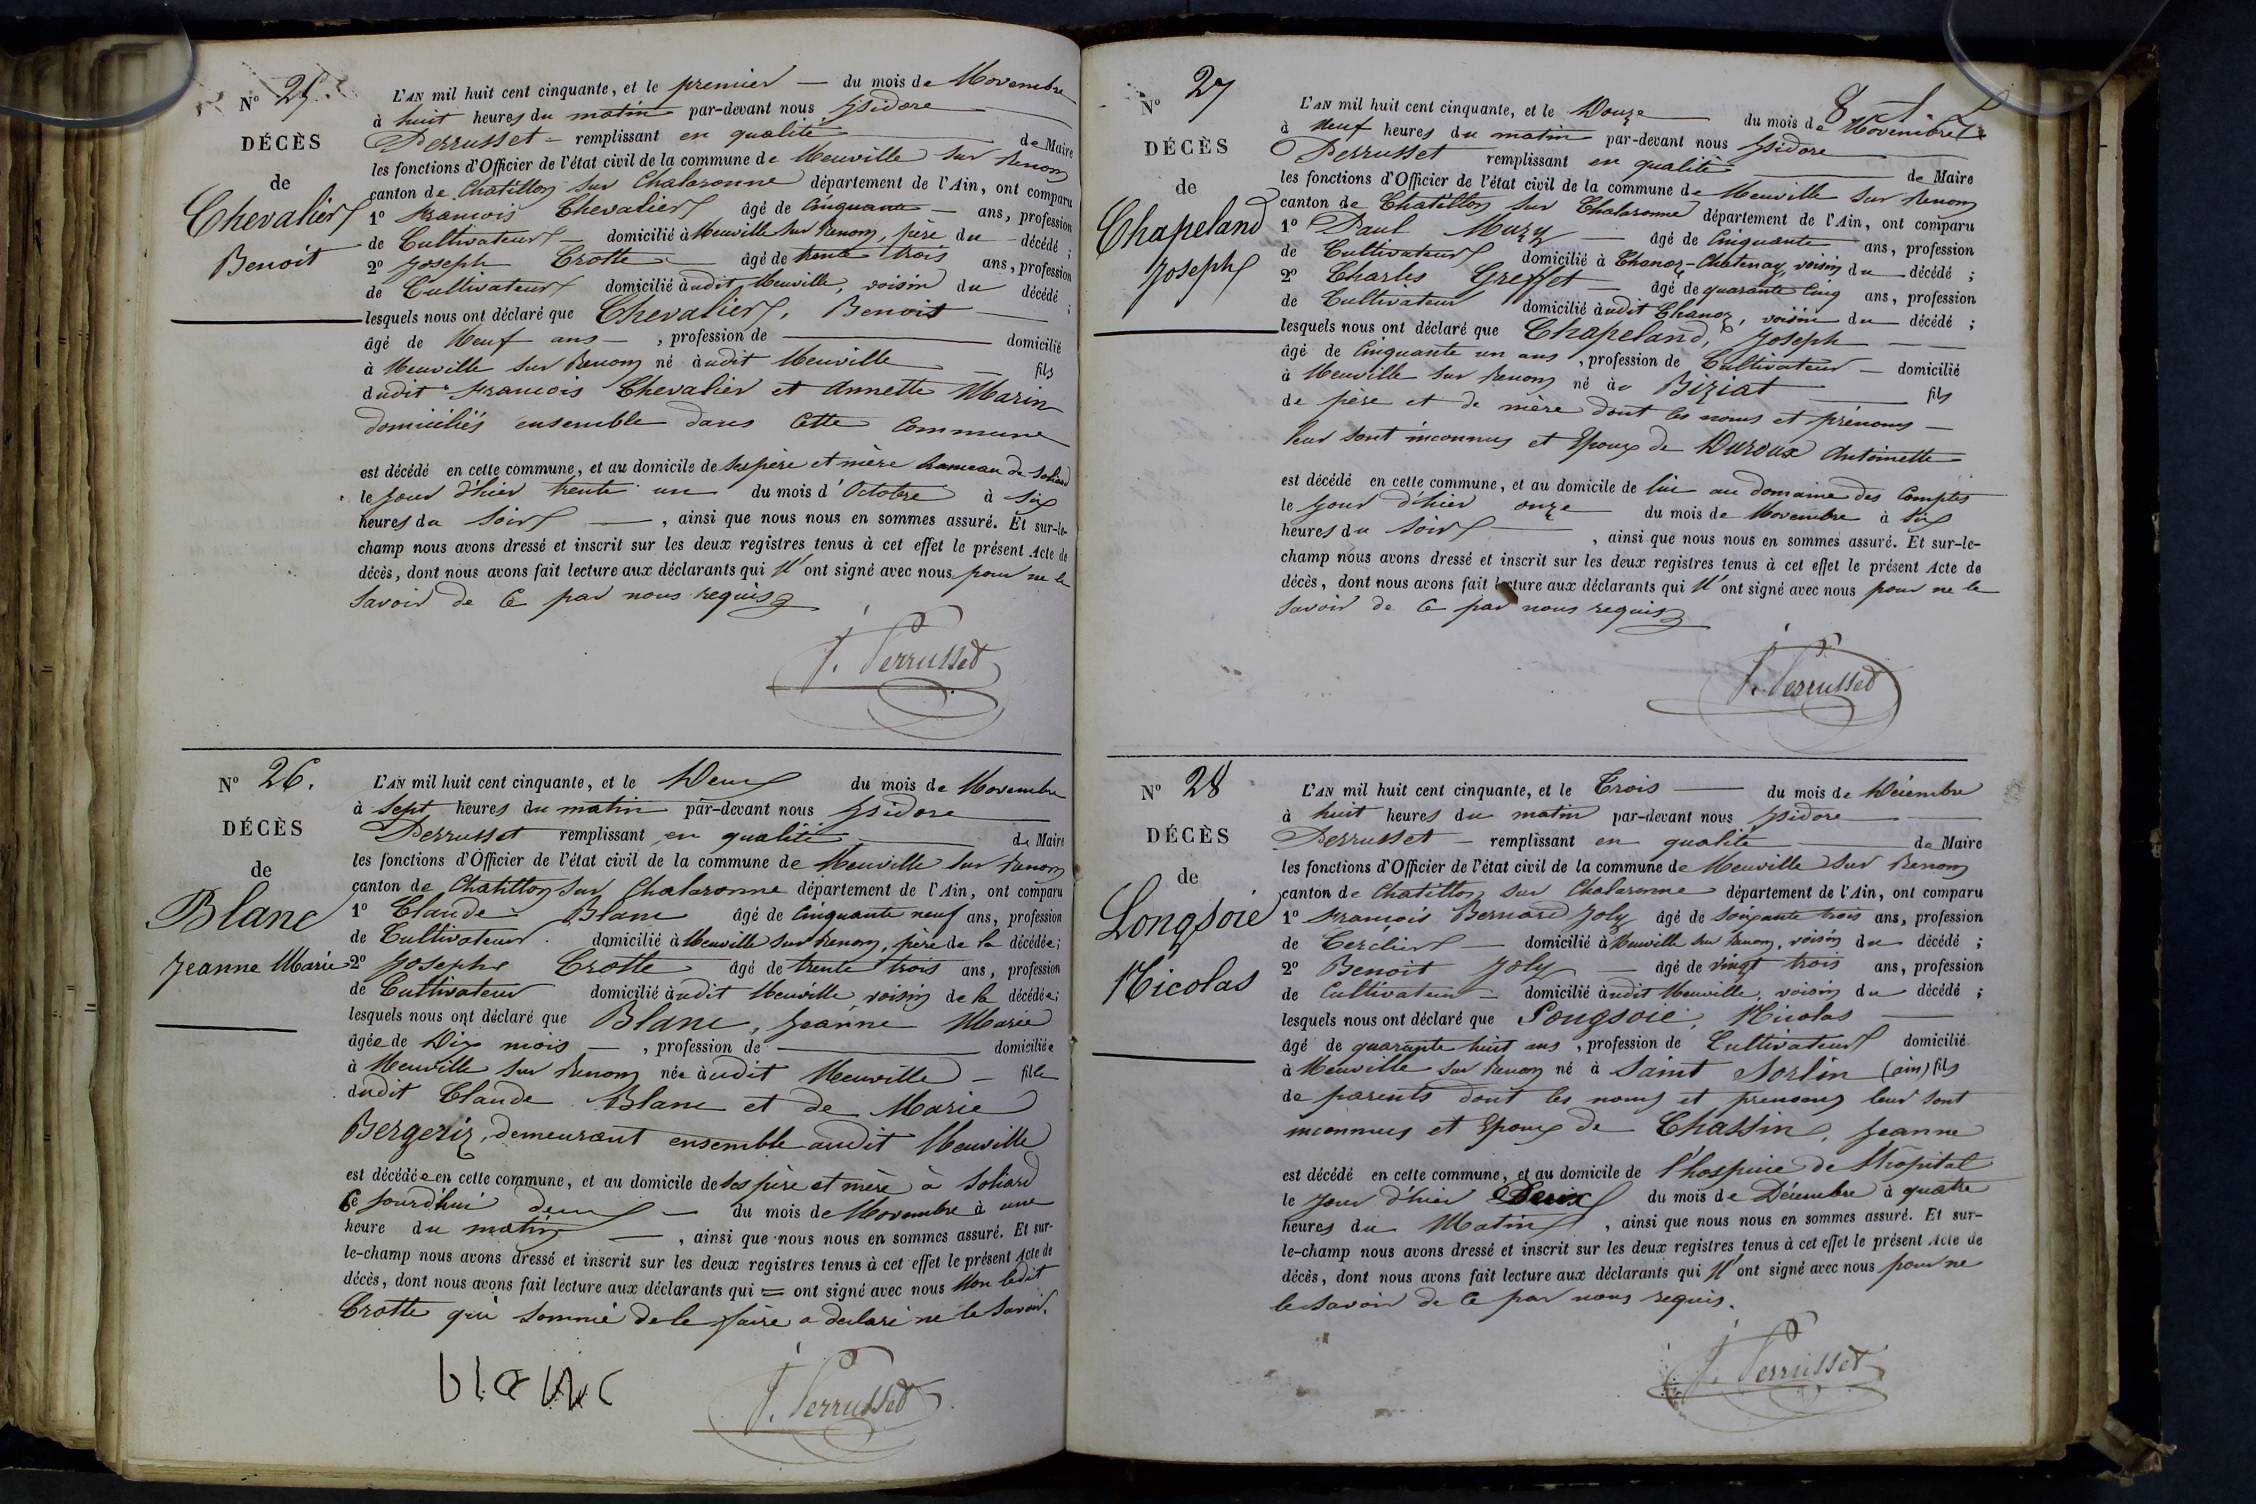 N° 25.
DÉCÈS
de
Chevalier
Benoit
L'AN mil huit cent cinquante, et le premier — du mois de Novembre
à huit heures du matin par-devant nous Isidore
Perrusset — remplissant en qualité de Maire
les fonctions d'Officier de l'état civil de la commune de Neuville sur Renom
canton de Chatillon sur Chalaronne département de l'Ain, ont comparu
1° François Chevalier âgé de cinquante — ans, profession
de Cultivateur — domicilié à Neuville sur Renom, père du décédé ;
2° Joseph Crotte — âgé de trente trois ans, profession
de Cultivateur domicilié audit Neuville, voisin du décédé ;
lesquels nous ont déclaré que Chevalier, Benoit
âgé de Neuf ans — , profession de — domicilié
à Neuville sur Renom né audit Neuville — fils
dudit François Chevalier et Annette Marin
domiciliés ensemble dans cette Commune
est décédé en cette commune, et au domicile de ses père et mère hameau de Soliard
le jour d'hier trente un du mois d'Octobre à six
heures du soir — , ainsi que nous nous en sommes assuré. Et sur-le-
champ nous avons dressé et inscrit sur les deux registres tenus à cet effet le présent Acte de
décès, dont nous avons fait lecture aux déclarants qui n'ont signé avec nous pour ne le
savoir de ce par nous requis
J. Perrusset
N° 26.
DÉCÈS
de
Blanc
Jeanne Marie
L'AN mil huit cent cinquante, et le Deux du mois de Novembre
à sept heures du matin par-devant nous Isidore
Perrusset remplissant en qualité de Maire
les fonctions d'Officier de l'état civil de la commune de Neuville sur Renom
canton de Chatillon sur Chalaronne département de l'Ain, ont comparu
1° Claude Blanc âgé de cinquante neuf ans, profession
de Cultivateur. domicilié à Neuville sur Renom, père de la décédée ;
2° Joseph Crotte âgé de trente trois ans, profession
de Cultivateur domicilié audit Neuville, voisin de la décédée ;
lesquels nous ont déclaré que Blanc, Jeanne Marie
âgée de Dix mois — , profession de — domiciliée
à Neuville sur Renom née audit Neuville — fille
dudit Claude Blanc et de Marie
Bergeriz, demeurant ensemble audit Neuville
est décédée en cette commune, et au domicile de ses père et mère à Soliard
Ce jourd'hui deux — du mois de Novembre à une
heure du matin — , ainsi que nous nous en sommes assuré. Et sur-
le-champ nous avons dressé et inscrit sur les deux registres tenus à cet effet le présent Acte de
décès, dont nous avons fait lecture aux déclarants qui = ont signé avec nous Non ledit
Crotte qui sommé de le faire a déclaré ne le savoir.
blanc
J. Perrusset
N° 27
DÉCÈS
de
Chapeland
Joseph
L'AN mil huit cent cinquante, et le Douze du mois de Novembre
à Neuf heures du matin par-devant nous Isidore
Perrusset remplissant en qualité de Maire
les fonctions d'Officier de l'état civil de la commune de Neuville sur Renom
canton de Chatillon sur Chalaronne département de l'Ain, ont comparu
1° Paul Mury — âgé de Cinquante ans, profession
de Cultivateur domicilié à Chanoz-Chatenay, voisin du décédé ;
2° Charles Greffet — âgé de quarante cinq ans, profession
de Cultivateur domicilié audit Chanoz, voisin du décédé ;
lesquels nous ont déclaré que Chapeland, Joseph
âgé de Cinquante un ans , profession de Cultivateur — domicilié
à Neuville sur Renom né à Biziat fils
de père et de mère dont les noms et prénoms —
leur sont inconnus et Epoux de Duroux Antoinette
est décédé en cette commune, et au domicile de lui au domaine des Comptes
le jour d'hier onze du mois de Novembre à six
heures du soir — , ainsi que nous nous en sommes assuré. Et sur-le-
champ nous avons dressé et inscrit sur les deux registres tenus à cet effet le présent Acte de
décès, dont nous avons fait lecture aux déclarants qui n'ont signé avec nous pour ne le
savoir de ce par nous requis
J. Perrusset
N° 28
DÉCÈS
de
Longsoie
Nicolas
L'AN mil huit cent cinquante, et le Trois — du mois de Décembre
à huit heures du matin par-devant nous Isidore
Perrusset — remplissant en qualité de Maire
les fonctions d'Officier de l'état civil de la commune de Neuville sur Renom
canton de Chatillon sur Chalaronne département de l'Ain, ont comparu
1° François Bernard Joly âgé de soixante trois ans, profession
de Cerclier — domicilié à Neuville sur Renom, voisin du décédé ;
2° Benoit Joly — âgé de vingt trois ans, profession
de Cultivateur — domicilié audit Neuville, voisin du décédé ;
lesquels nous ont déclaré que Longsoie, Nicolas
âgé de quarante huit ans , profession de Cultivateur domicilié
à Neuville sur Renom né à Saint Sorlin (ain) fils
de parents dont les noms et prenoms leur sont
inconnus et Epoux de Chassin, Jeanne
est décédé en cette commune, et au domicile de l'hospice de l'hopital
le jour d'hier Deux du mois de Décembre à quatre
heures du Matin , ainsi que nous nous en sommes assuré. Et sur-
le-champ nous avons dressé et inscrit sur les deux registres tenus à cet effet le présent Acte de
décès, dont nous avons fait lecture aux déclarants qui n'ont signé avec nous pour ne
le savoir de ce par nous requis.
J. Perrusset